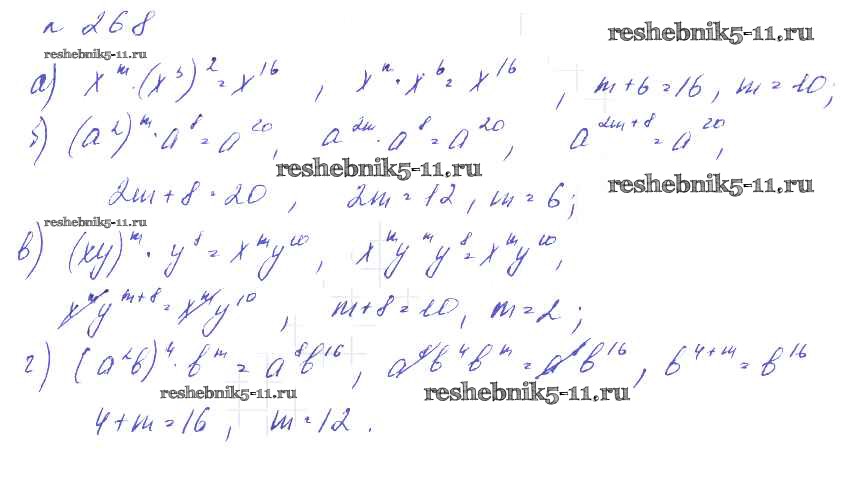 n 268
reshebnik5-11.ru
reshebnik5-11.ru
а) x^m · (x^3)^2 = x^16 , x^m · x^6 = x^16 , m+6=16, m=10;
б) (a^2)^m · a^8 = a^20 , a^2m · a^8 = a^20 , a^2m+8 = a^20 ,
reshebnik5-11.ru
2m+8=20 , 2m=12, m=6;
reshebnik5-11.ru
reshebnik5-11.ru
в) (xy)^m · y^8 = x^m y^10 , x^m y^m y^8 = x^m y^10 ,
x^m y^m+8 = x^m y^10 , m+8=10, m=2;
г) (a^2b)^4 · b^m = a^8b^16 , a^8b^4b^m = a^8b^16 , b^4+m = b^16
reshebnik5-11.ru
reshebnik5-11.ru
4+m=16, m=12.